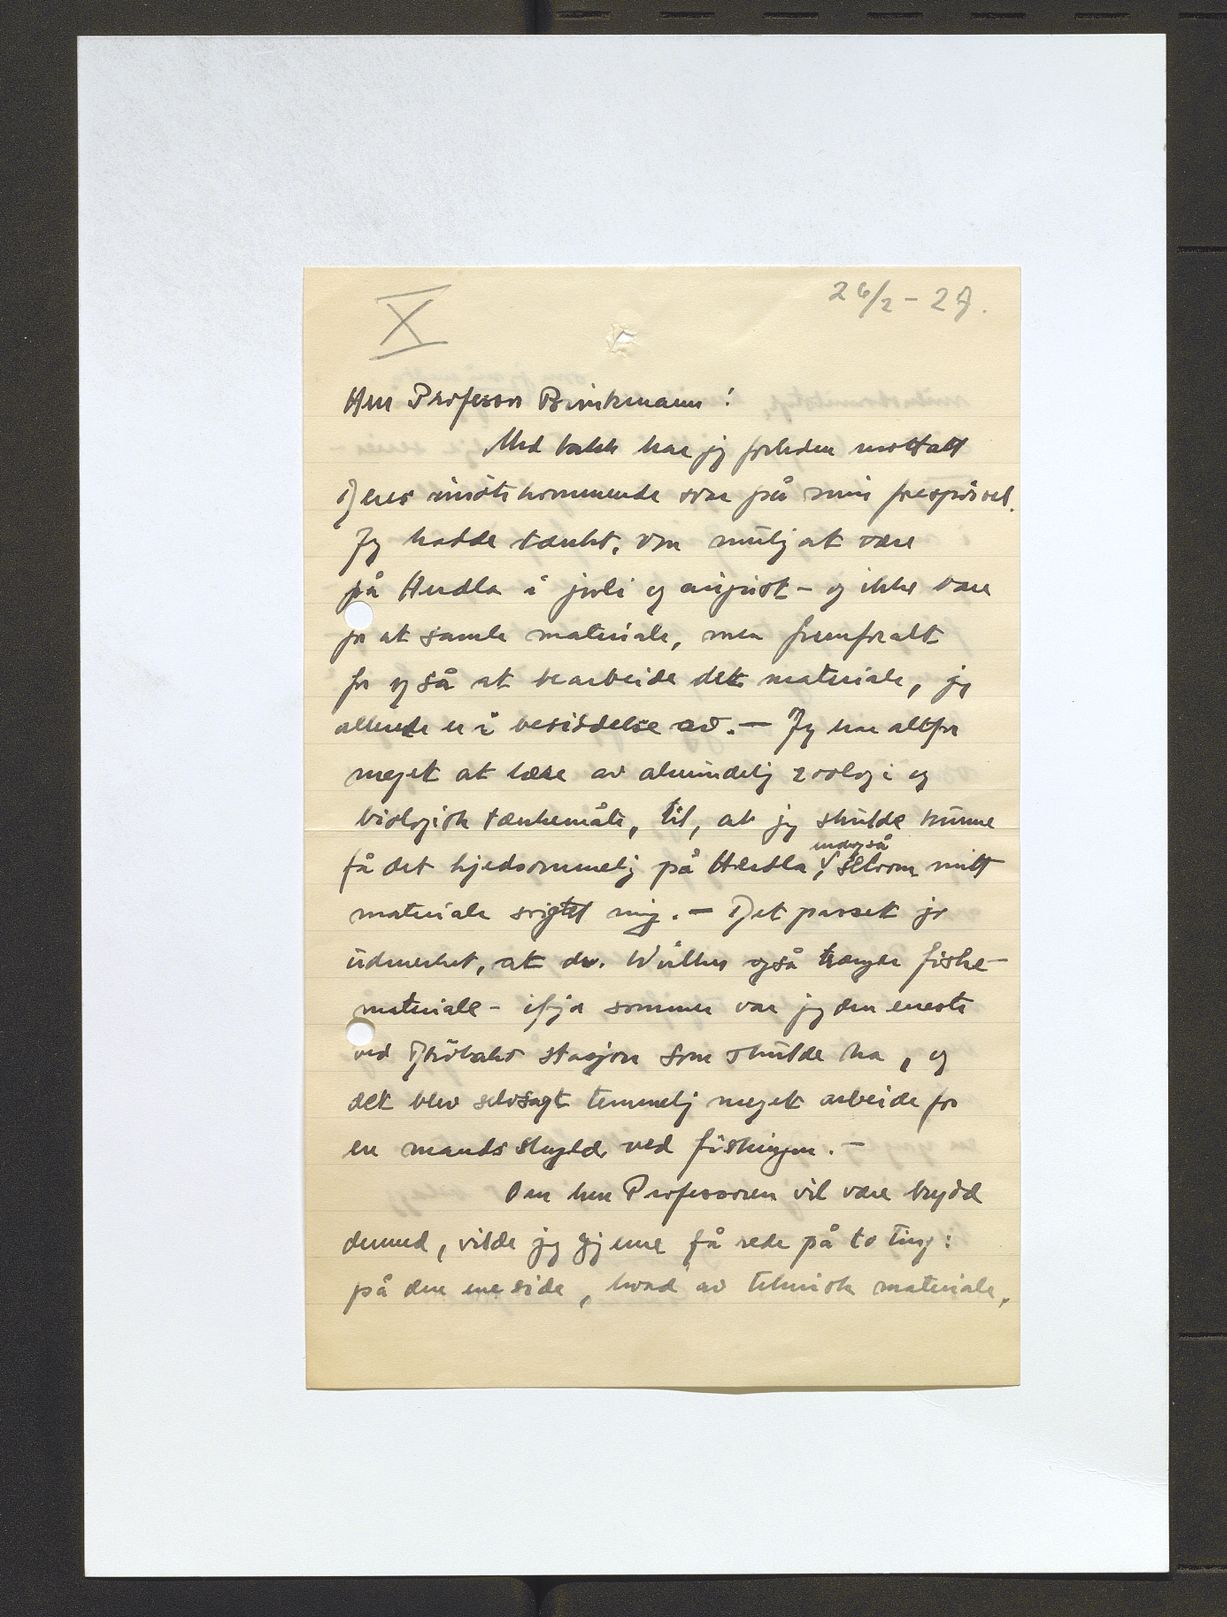 X
26/2 - 27.
Herr Professor Brinkmann!
Med takk har jeg forleden mottatt
Deres imøtekommende svar på min forespørsel.
Jeg hadde tænkt, om mulig at være
på Herdla i juli og august - og ikke bare
for at samle materiale, men fremforalt
for også at bearbeide det materiale, jeg
allerede er i besiddelse av. - Jeg har altfor
meget at læse av almindelig zoologi og
biologisk tænkemåte, til, at jeg skulde kunne
få det kjedsommelig på Herdla, selvom mitt
endogså
materiale svigtet mig. - Det passet jo
udmerket, at dr. også trænger fiske-
materiale - ifjor sommer var jeg den eneste
ved Drøbaks stasjon som skulde ha, og
det blev selvsagt temmelig meget arbeide for
en mands skyld ved fiskingen. -
Om herr Professoren vil være brydd
dermed, vilde jeg gjerne få rede på to ting:
på den ene side, hvad av teknisk materiale,